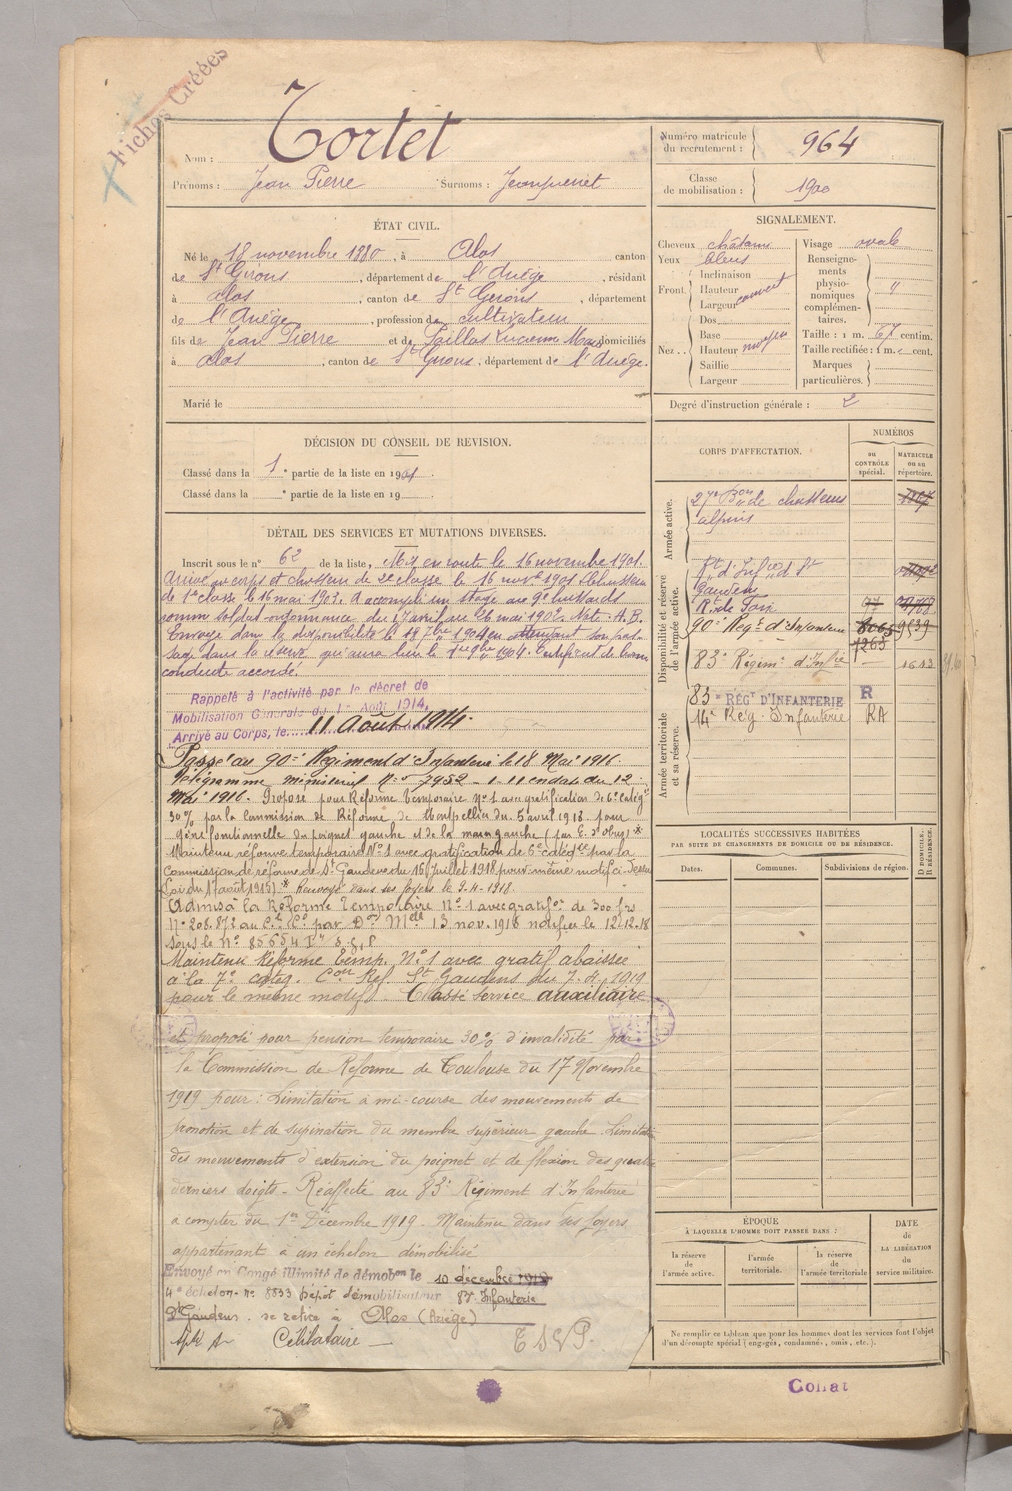 Fiches Créées
Nom : Tortet
Prénoms : Jean Pierre Surnoms : Jeanquenet
Numéro matricule du recrutement : 964
Classe de mobilisation : 1900
ÉTAT CIVIL.
Né le 18 novembre 1880, à Alos canton
de St Girons, département de l'Ariège, résidant
à Alos, canton de St Girons, département
de l'Ariège, profession de cultivateur
fils de Jean Pierre et de Paillas Lucienne Marie domiciliés
à Alos, canton de St Girons, département de l'Ariège.
Marié le
SIGNALEMENT.
Cheveux châtains
Yeux bleus
Front. Inclinaison
Hauteur
Largeur
couvert
Nez .. Dos
Base
Hauteur moyen
Saillie
Largeur
Visage ovale
Renseignements physionomiques complémentaires. "
Taille : 1 m. 67 centim.
Taille rectifiée : 1 m. cent.
Marques particulières.
Degré d'instruction générale : 2
DÉCISION DU CONSEIL DE REVISION.
Classé dans la 1e partie de la liste en 1901.
Classé dans la e partie de la liste en 19
DÉTAIL DES SERVICES ET MUTATIONS DIVERSES.
Inscrit sous le n° 62 de la liste, Mis en route le 16 novembre 1901.
Arrivé au corps et chasseur de 2e classe le 16 novbre 1901. Chasseur
de 1e classe le 16 mai 1903. A accompli un stage au 9e hussards
comme soldat ordonnance du 17 avril au 26 mai 1902. Note : A.B.
Envoyé dans la disponibilité le 18 7bre 1904 en attendant son pas-
sage dans la réserve qu'aura lieu le 1er 9bre 1904. Certificat de bonne
conduite accordé.
Rappelé à l'activité par le décret de
Mobilisation Générale du 1er Août 1914,
Arrivé au Corps, le 11 Août 1914.
Passé au 90e Régiment d'Infanterie le 18 Mai 1916.
Télégramme ministeriel N° 7952 - 1-11 en date du 12
Mai 1916. Proposé pour Réforme temporaire N° 1 avec gratification de 6e catégie
30% par la Commission de Réforme de Montpellier du 5 avril 1918 pour
gêne fonctionnelle du poignet gauche et de la main gauche (par E. d'obus) *
Maintenu réforme temporaire N° 1 avec gratification de 6e catégie par la
Commission de réforme de St Gaudens du 16 juillet 1918 pour même motif
Loi du 17 août 1915). * Renvoyé dans ses foyers le 9-4-1918.
Admis à la Réforme Temporaire N° 1 avec gratifon de 300 frs
N° 208.872 par 13 nov. 1918 notifiée le 12.12.18
sous le N° 85654
Maintenu Réforme temp. N° 1 avec gratif abaissée
à la 7e catég. Con Ref. St Gaudens du 7. 1919
pour le même motif. Classé service auxiliaire
et proposé pour pension temporaire 30% d'invalidité par
la Commission de Réforme de Toulouse du 17 Novembre
1919 pour : Limitation à mi-course des mouvements de
pronation et de supination du membre supérieur gauche. Limitation
des mouvements d'extension du poignet et de flexion des quatre
derniers doigts. Réaffecté au 83e Régiment d'Infanterie
à compter du 1er Décembre 1919. Maintenu dans ses foyers
appartenant à un échelon démobilisé
Envoyé en Congé illimité de démobon le 10 décembre 1918
4e échelon - N° 8833 Dépôt démobilisateur 83e Infanterie
St Gaudens se retire à Alos (Ariège)
Célibataire
CORPS D'AFFECTATION.
NUMÉROS
au CONTRÔLE spécial.
MATRICULE ou au répertoire.
Armée active.
27e Bon de chasseurs
alpins
Disponibilité et réserve de l'armée active.
Rt d'Infie de St
Gaudens
Rt de Foix
90e Régt d'Infanterie 9639
1265
83e Régim. d'Infie 1613
Armée territoriale et sa réserve.
83e RÉGt D'INFANTERIE R
14e Rég. Infanterie RA
LOCALITÉS SUCCESSIVES HABITÉES
PAR SUITE DE CHANGEMENTS DE DOMICILE OU DE RÉSIDENCE.
Dates. Communes. Subdivisions de région. D DOMICILE. R RÉSIDENCE.
ÉPOQUE
À LAQUELLE L'HOMME DOIT PASSER DANS :
la réserve de l'armée active.
l'armée territoriale.
la réserve de l'armée territoriale
DATE de LA LIBÉRATION du service militaire.
Ne remplir ce tableau que pour les hommes dont les services font l'objet
d'un décompte spécial (engagés, condamnés, omis, etc.).